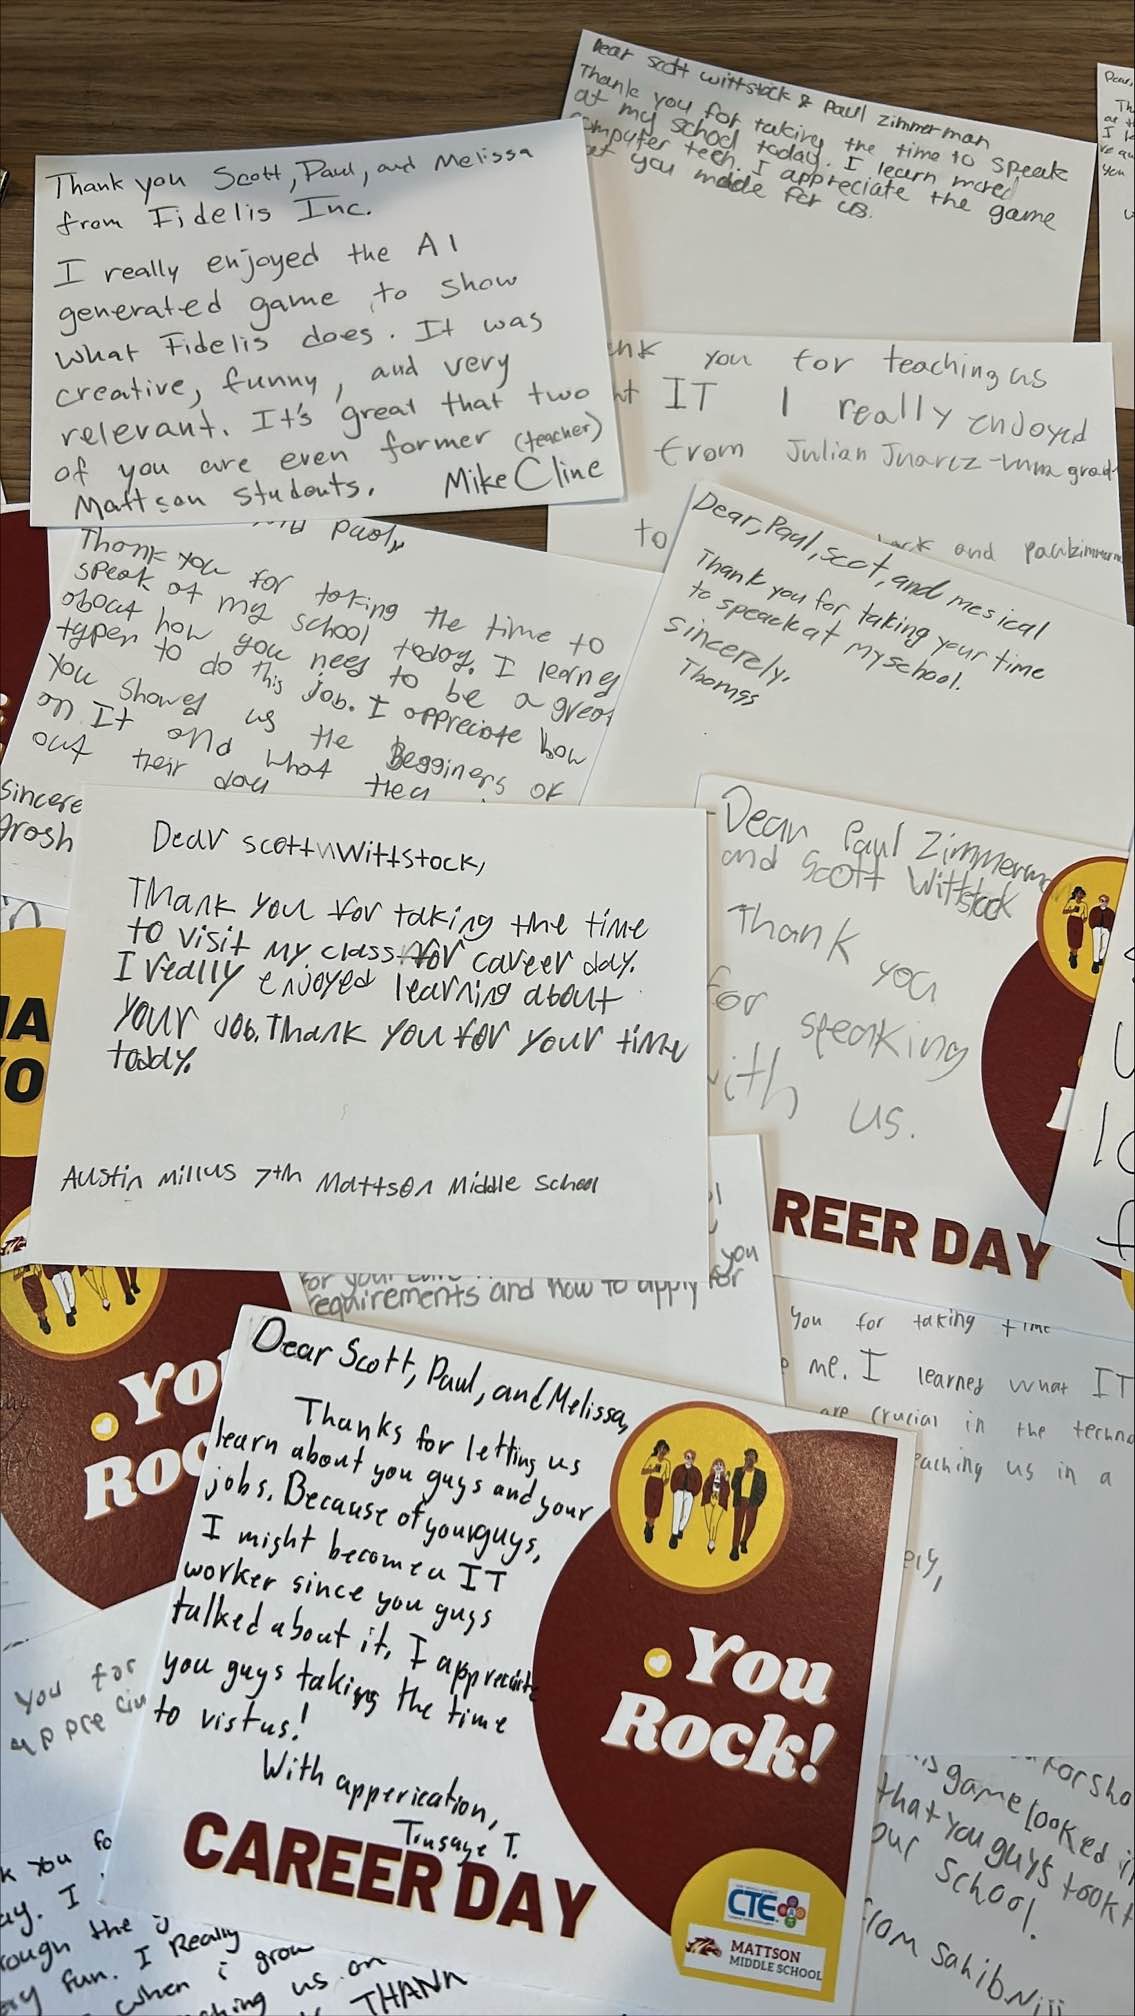 Dear Scott Wittstock & Paul Zimmerman
Thank you for taking the time to speak
at my school today. I learn more
computer tech. I appreciate the game
you made for us.
Thank you Scott, Paul, and Melissa
from Fidelis Inc.
I really enjoyed the AI
generated game to show
what Fidelis does. It was
creative, funny, and very
relevant. It's great that two
of you are even former (teacher)
Mattson students. Mike Cline
you for teaching us
IT I really enjoyed
from Julian Juarez
to
and paulzimmerm
Paul,
Thank you for taking the time to
speak at my school today. I learney
about how you need to be a great
typer to do this job. I appreciate how
you showed us the Begginers of
on It and what
out their day
Sincere
Arosh
Dear, Paul, Scot, and mesical
Thank you for taking your time
to speack at my school.
Sincerely,
Thomas
Dear Scott Wittstock,
Thank you for taking the time
to visit my class for career day.
I really enjoyed learning about
your job. Thank you for your time
today.
Austin Millus 7th Mattson Middle School
Dear Paul Zimmerma
and Scott Wittstock
Thank you
for speaking
with us.
REER DAY
you
requirements and how to apply for
you for taking time
me. I learned what IT
are crucial in the techno
eaching us in a
ely,
YOU
ROC
Dear Scott, Paul, and Melissa,
Thanks for letting us
learn about you guys and your
jobs. Because of yourguys,
I might become a IT
worker since you guys
talked about it. I appreciate
you guys taking the time
to vistus!
With apperication,
Tinsaye T.
You
Rock!
CAREER DAY
CTE
MATTSON
MIDDLE SCHOOL
you for
appreciu
k you fo
ay. I
rough the
ay fun. I Really
when i grow
ching us on
THANK
for sho
is game looked i
that you guys took t
our school.
from Sahib